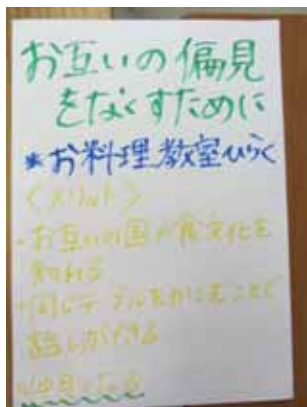 お互いの偏見
をなくすために
*お料理教室ひらく
〈メリット〉
・お互いの国の食文化を
知れる
・同じテーブルをかこむことで
話しができる